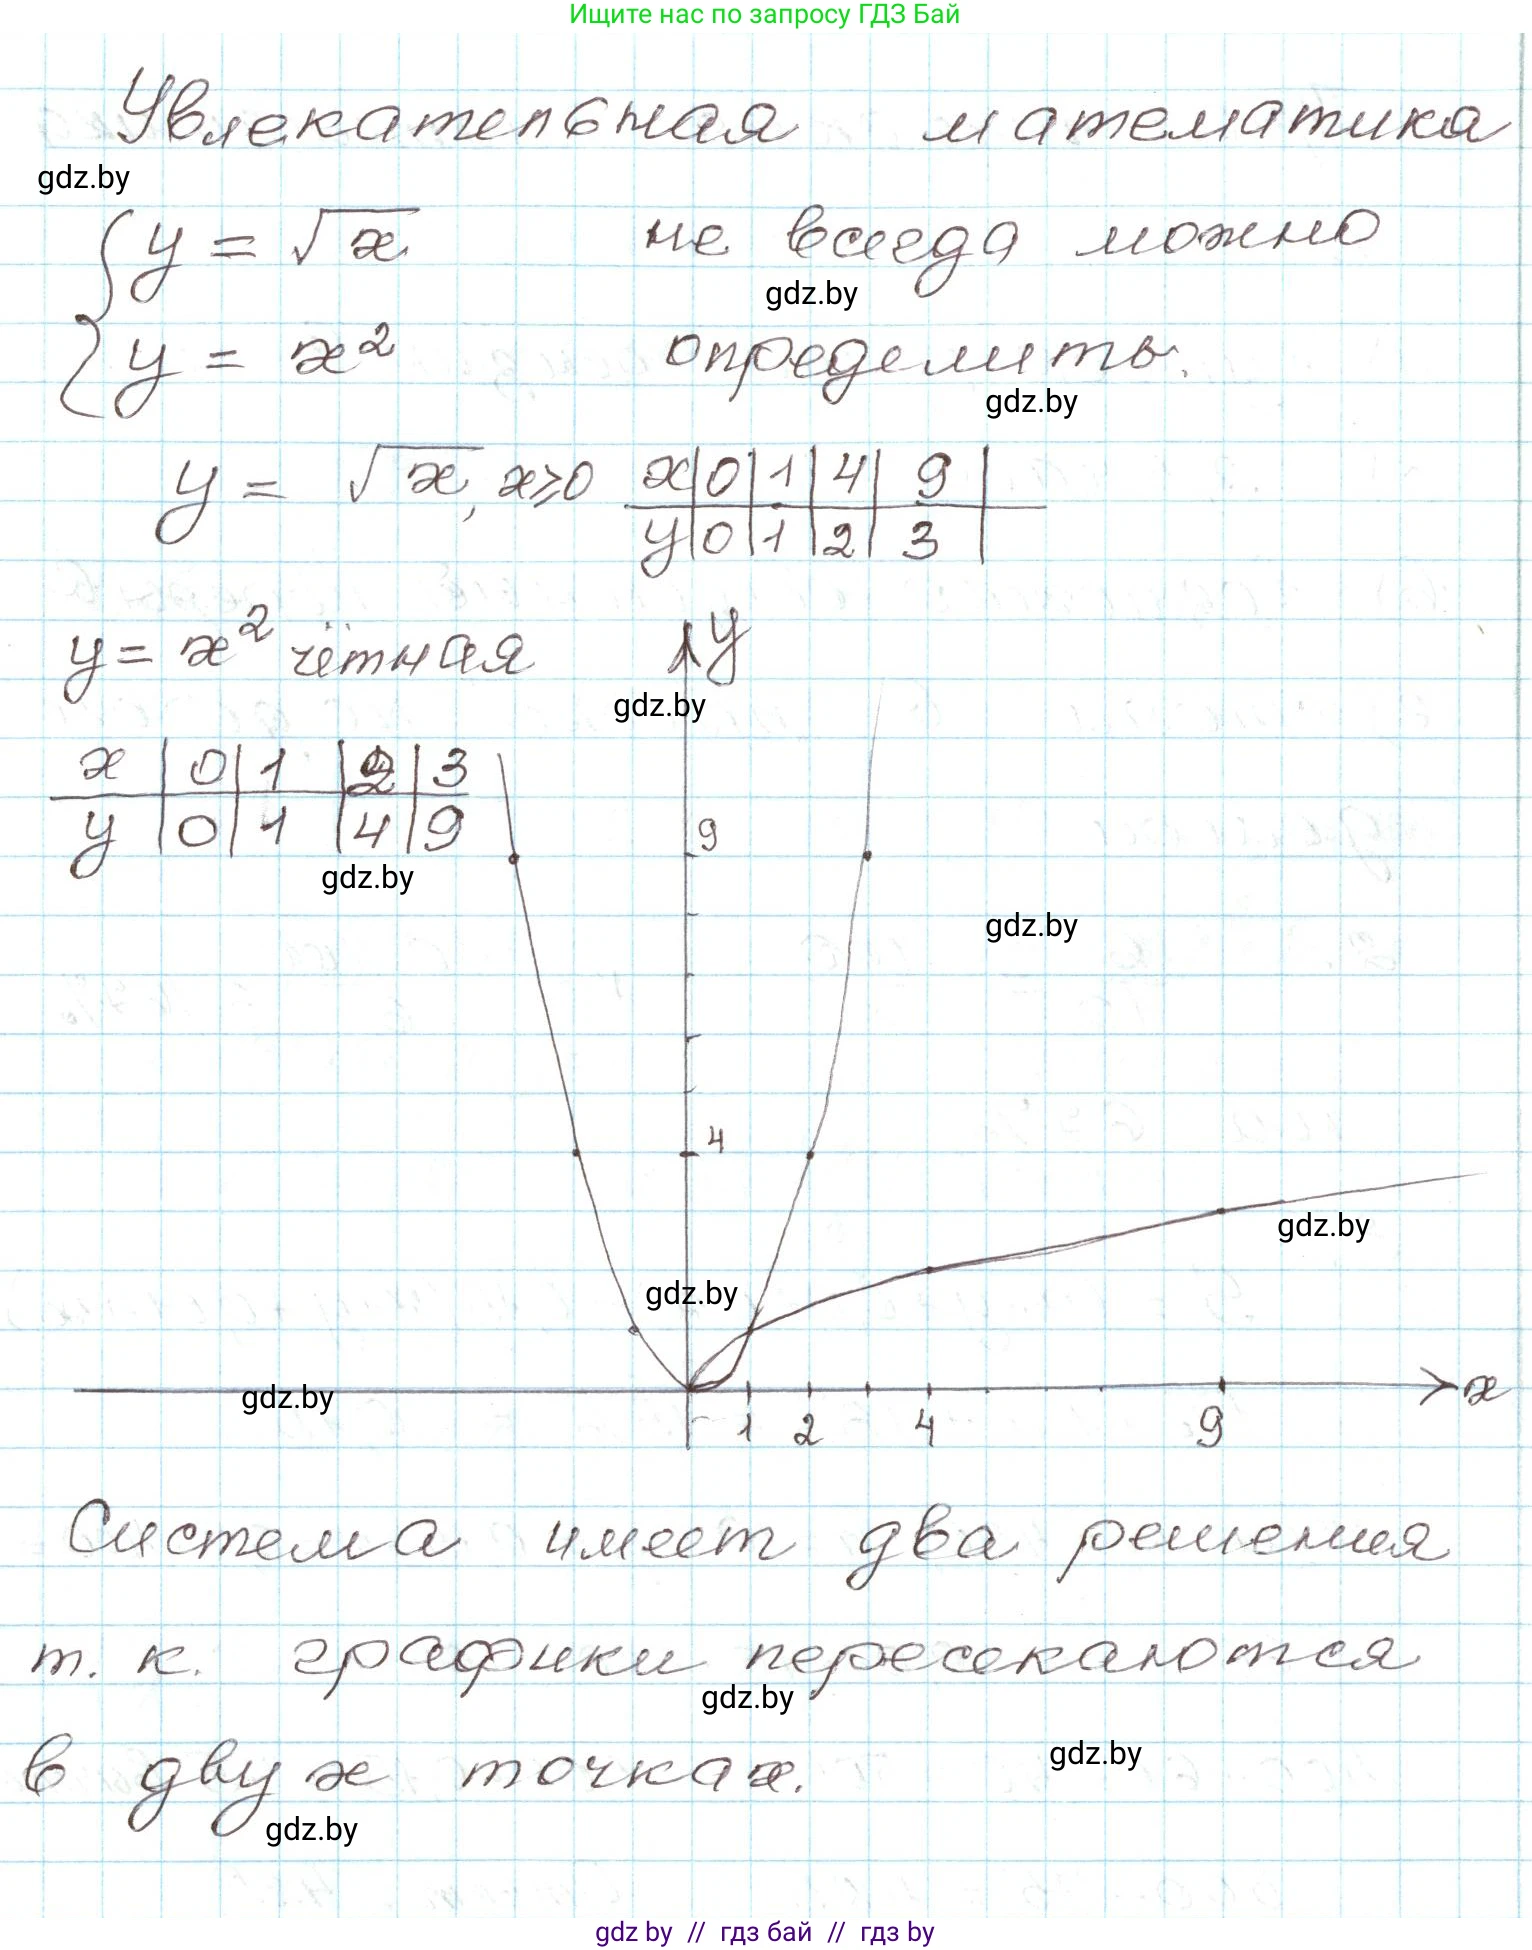 Ищите нас по запросу ГДЗ Бай
Увлекательная математика
gdz.by
{ y = √x не всегда можно
gdz.by
y = x² определить.
gdz.by
y = √x, x≥0 x | 0 | 1 | 4 | 9
y | 0 | 1 | 2 | 3
y = x² чётная y
gdz.by
x | 0 | 1 | 2 | 3
y | 0 | 1 | 4 | 9
9
gdz.by
gdz.by
4
gdz.by
gdz.by
gdz.by
x
1 2 4 9
Система имеет два решения
т. к. графики пересекаются
gdz.by
в двух точках.
gdz.by
gdz.by
gdz by // гдз бай // гдз by